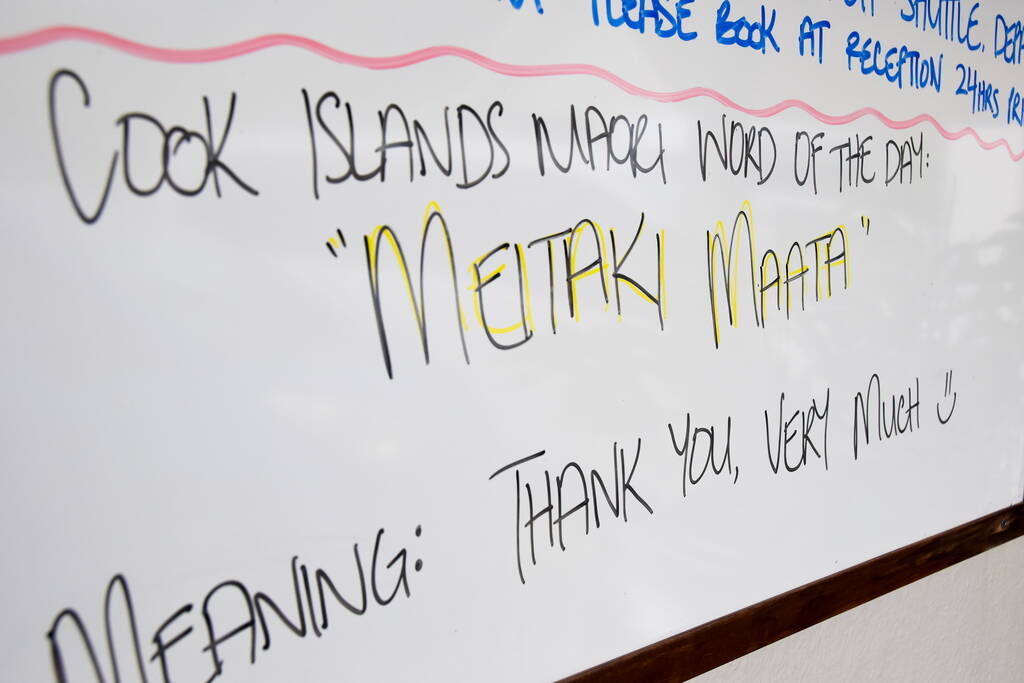 PLEASE BOOK AT RECEPTION 24HRS
SHUTTLE.
COOK ISLANDS MAORI WORD OF THE DAY:
"MEITAKI MAATA"
MEANING: THANK YOU, VERY MUCH